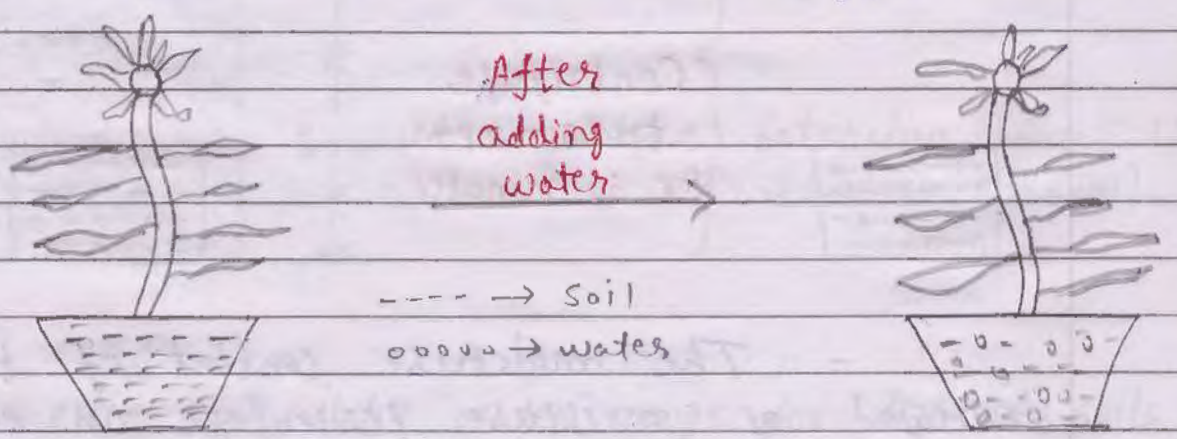 After
adding
water
---- → Soil
ooooo → water